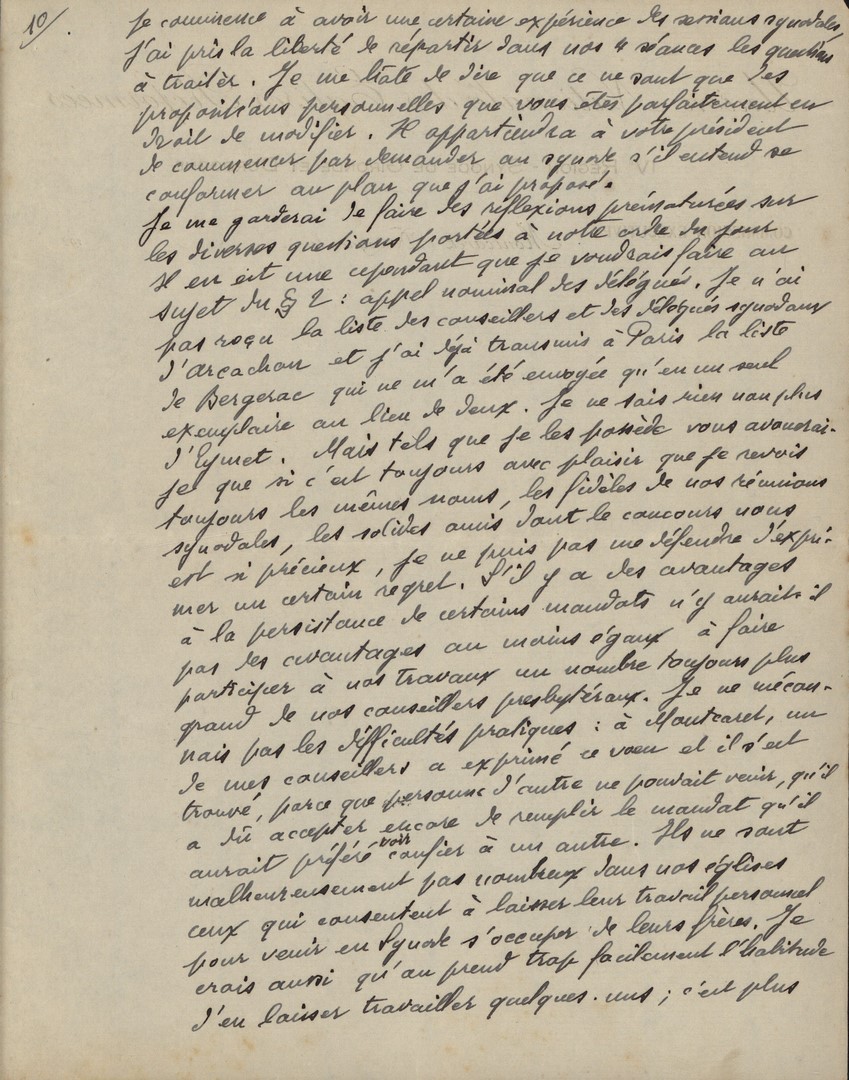 10/.
je commence à avoir une certaine expérience des sessions synodales,
j'ai pris la liberté de répartir dans nos 4 séances les questions
à traiter. Je me hâte de dire que ce ne sont que des
propositions personnelles que vous êtes parfaitement en
droit de modifier. Il appartiendra à votre président
de commencer par demander au synode s'il entend se
conformer au plan que j'ai proposé.
Je me garderai de faire des réflexions prématurées sur
les diverses questions portées à notre ordre du jour
Il en est une cependant que je voudrais faire au
sujet du § 2 : appel nominal des délégués. Je n'ai
pas reçu la liste des conseillers et des délégués synodaux
d'Arcachon et j'ai déjà transmis à Paris la liste
de Bergerac qui ne m'a été envoyée qu'en un seul
exemplaire au lieu de deux. Je ne sais rien non plus
d'Eymet. Mais tels que je les possède vous avouerai-
je que si c'est toujours avec plaisir que je revois
toujours les mêmes noms, les fidèles de nos réunions
synodales, les solides amis dont le concours nous
est si précieux, je ne puis pas me défendre d'expri-
mer un certain regret. S'il y a des avantages
à la persistance de certains mandats n'y aurait-il
pas des avantages au moins égaux à faire
participer à nos travaux un nombre toujours plus
grand de nos conseillers presbytéraux. Je ne mécon-
nais pas les difficultés pratiques : à Montcaret, un
de mes conseillers a exprimé ce voeu et il s'est
trouvé, parce que personne d'autre ne pouvait venir, qu'il
a dû accepter encore de remplir le mandat qu'il
aurait préféré voir confier à un autre. Ils ne sont
malheureusement pas nombreux dans nos églises
ceux qui consentent à laisser leur travail personnel
pour venir en Synode s'occuper de leurs frères. Je
crois aussi qu'on prend trop facilement l'habitude
d'en laisser travailler quelques-uns ; c'est plus